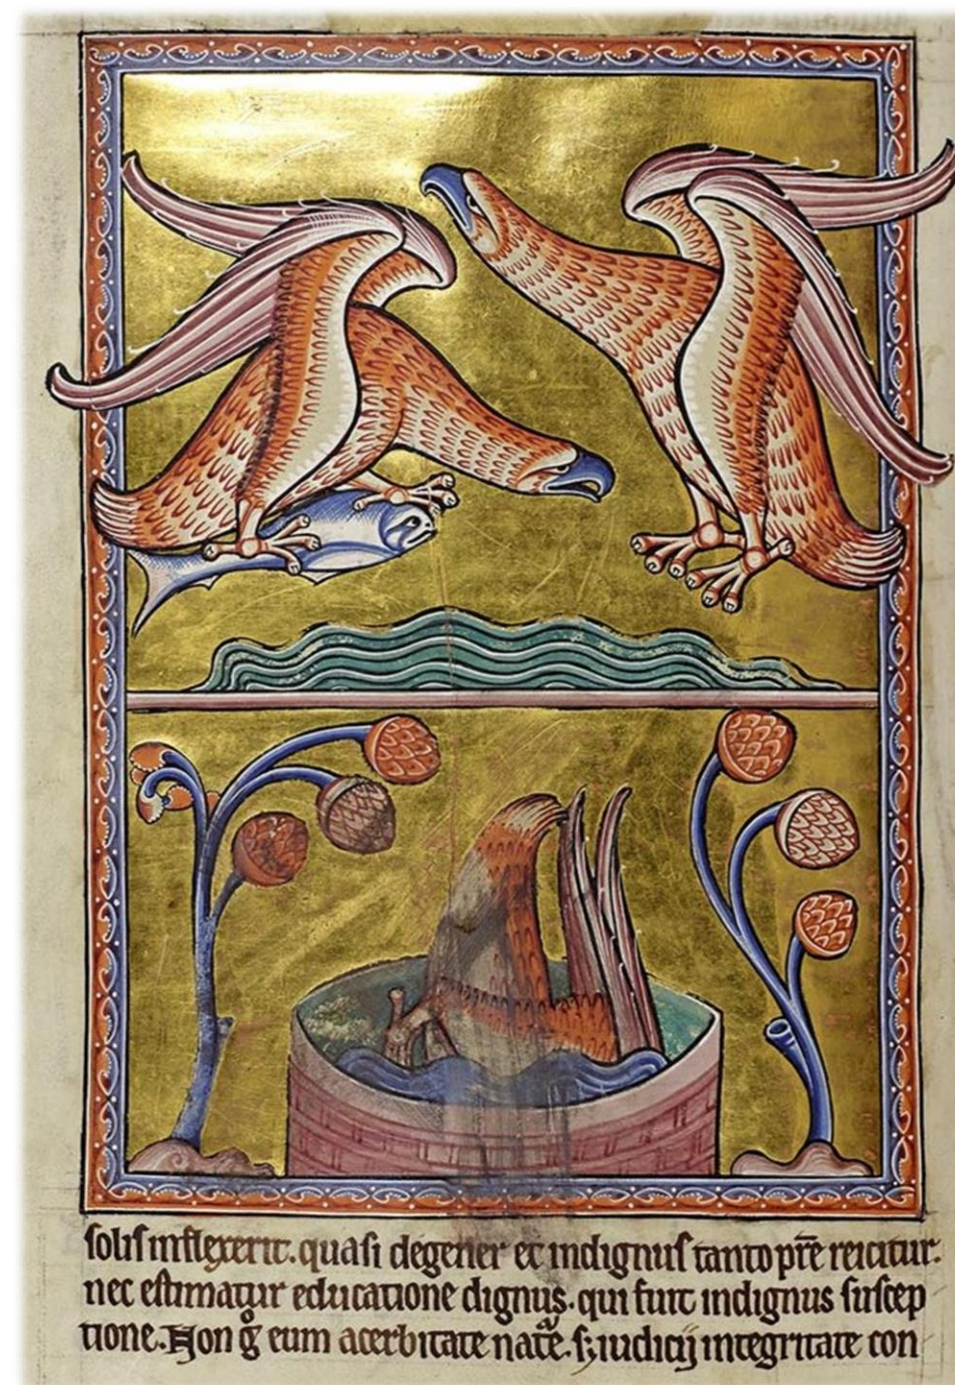 solis inflexerit. quasi degener et indignus tanto pr̄e reicitur.
nec estimatur educatione dignus. qui fuit indignus suscep
tione. Non gͦ eum acerbitate nat̄e. s; iudicij integritate con